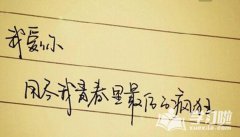 我爱你
用尽我青春里最后的疯狂
学习啦
www.xuexila.com